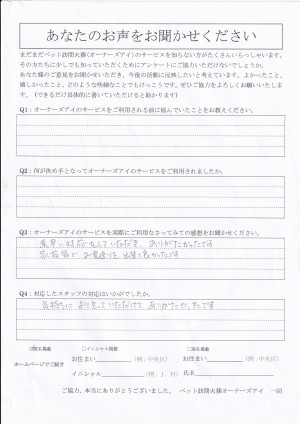 あなたのお声をお聞かせください
まだまだペット訪問火葬(オーナーズアイ)のサービスを知らない方がたくさんいらっしゃいます。
その方たちに少しでも知っていただくためにアンケートにご協力いただけないでしょうか。
あなた様のご意見をお聞かせいただき、今後の活動に反映したいと考えています。よかったこと、
嬉しかったこと、どのような些細なことでもけっこうです。ぜひご協力をよろしくお願いいたしま
す。(できるだけ具体的に書いていただけると助かります)
Q1:オーナーズアイのサービスをご利用される前に悩んでいたことをお教えください。
Q2:何が決め手となってオーナーズアイのサービスをご利用されましたか。
Q3:オーナーズアイのサービスを実際にご利用なさってみての感想をお聞かせください。
素早い対応をしていただき、ありがたかったです
家族皆で お見送りを 出来て良かったです
Q4:対応したスタッフの対応はいかがでしたか。
気持ちに よりそって いただけて ありがたかったです
□イニシャル掲載
ホームページでご紹介
お住まい (例:中央区)
お住まい (例:中央区)
イニシャル (例:J、H)
氏名
ご協力、本当にありがとうございました。 ペット訪問火葬オーナーズアイ 一同